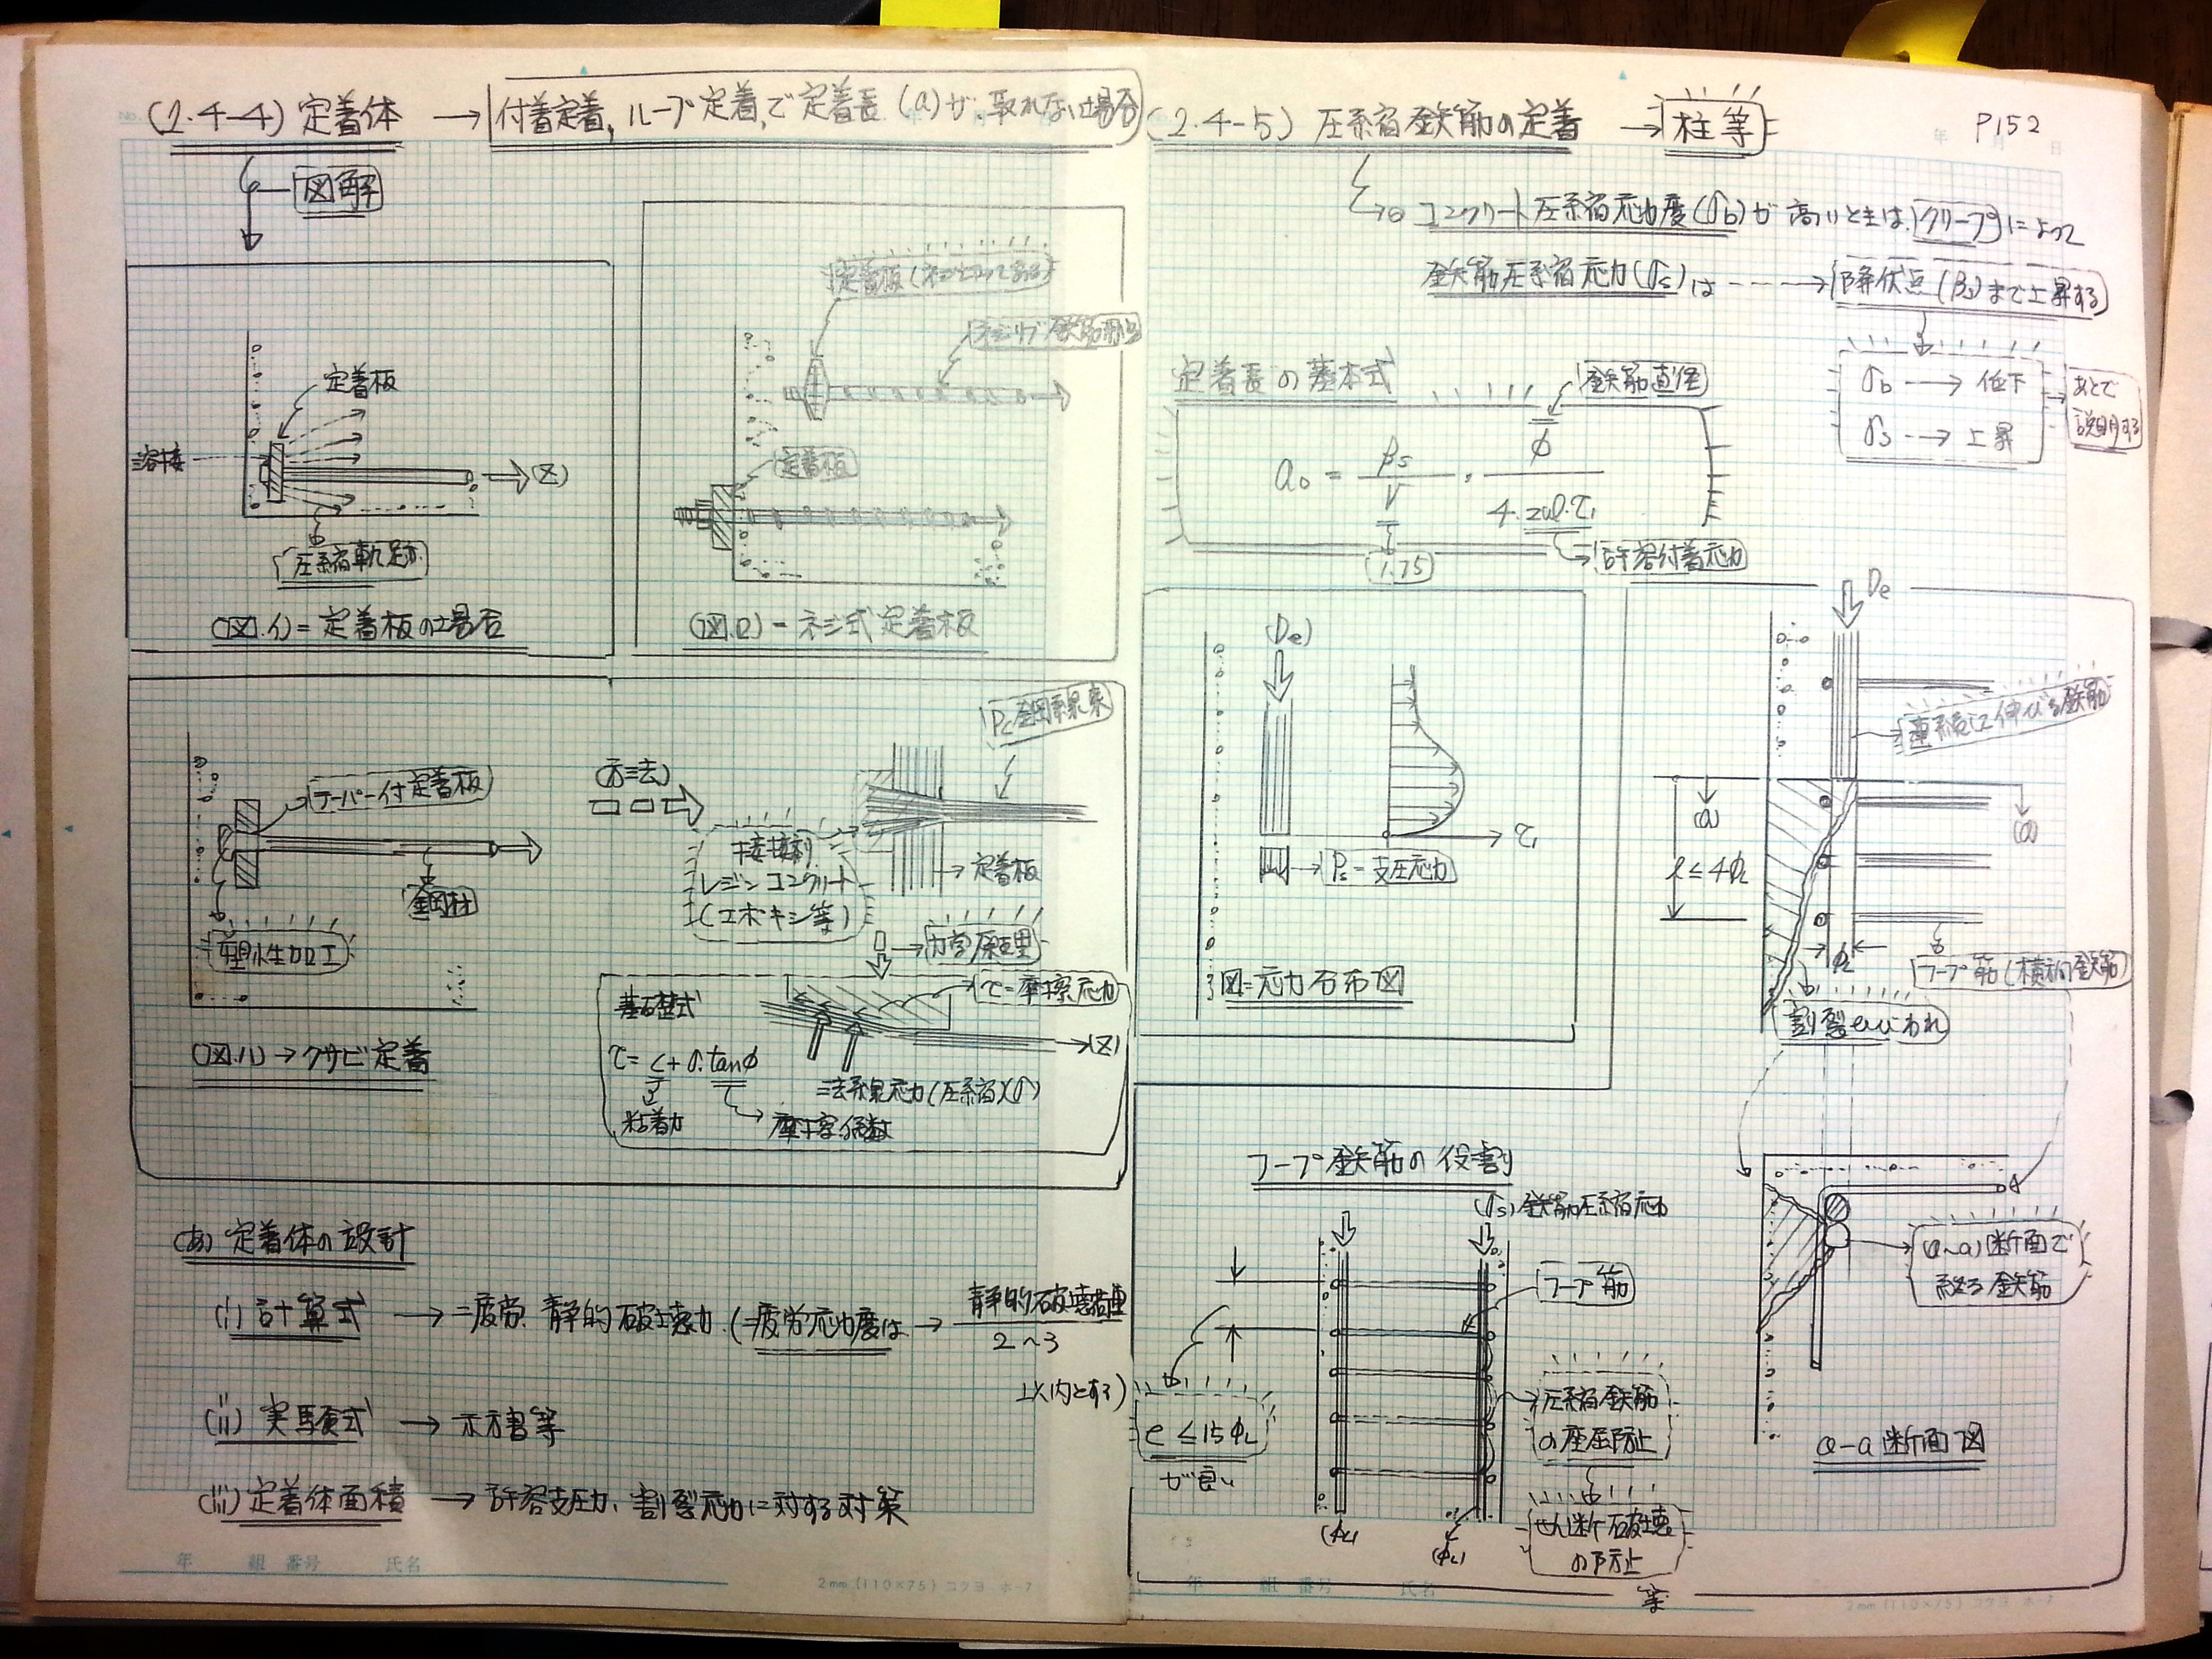 (2.4-4) 定着体 → 付着定着, ループ定着,で定着長(a)が,取れない場合
図解
定着板
溶接
(Z)
圧縮軌跡
(図.イ)=定着板の場合
定着板(ネジ切ってある)
ネジリブ鉄筋
定着板
(図.ロ)-ネジ式定着板
テーパー付定着板
鋼材
塑性加工
(図.ハ)→クサビ定着
PC鋼線束
接接剤
レジンコンクリート
(エポキシ等)
定着板
力学原理
基礎式
τ=摩擦応力
τ= c + σ.tanφ
(Z)
法線応力(圧縮)(σ)
粘着力
摩擦係数
(あ) 定着体の設計
(i) 計算式 → 疲労 静的破壊力 (=疲労応力度は → 静的破壊荷重
2~3
以内とする)
(ii) 実験式 → 示方書等
(iii) 定着体面積 → 許容支圧力、割裂応力に対する対策
年 組 番号 氏名
2mm (110×75) コクヨ ホ-7
(2.4-5) 圧縮鉄筋の定着 → 柱等
P152
コンクリート圧縮応力度(σb)が高いときは,クリープによって
鉄筋圧縮応力(σs)は ----→ 降伏点(βs)まで上昇する
σb → 低下
σs → 上昇
あとで
説明する
定着長の基本式
鉄筋直径
a0 = βs/ν . φ/4.zul.τ1
1.75
許容付着応力
(De)
τ1
Ps=支圧応力
図=応力分布図
De
連続して伸びる鉄筋
(a)
(a)
l≤4φL
φL
フープ筋(横補鉄筋)
割裂ひびわれ
フープ鉄筋の役割
(σs)鉄筋圧縮応力
フープ筋
e ≤ 15φL
が良い
圧縮鉄筋
の座屈防止
せん断破壊
の防止
等
(φL)
(φL)
(a~a)断面で
終る鉄筋
a-a断面図
年 組 番号 氏名
2mm (110×75) コクヨ ホ-7